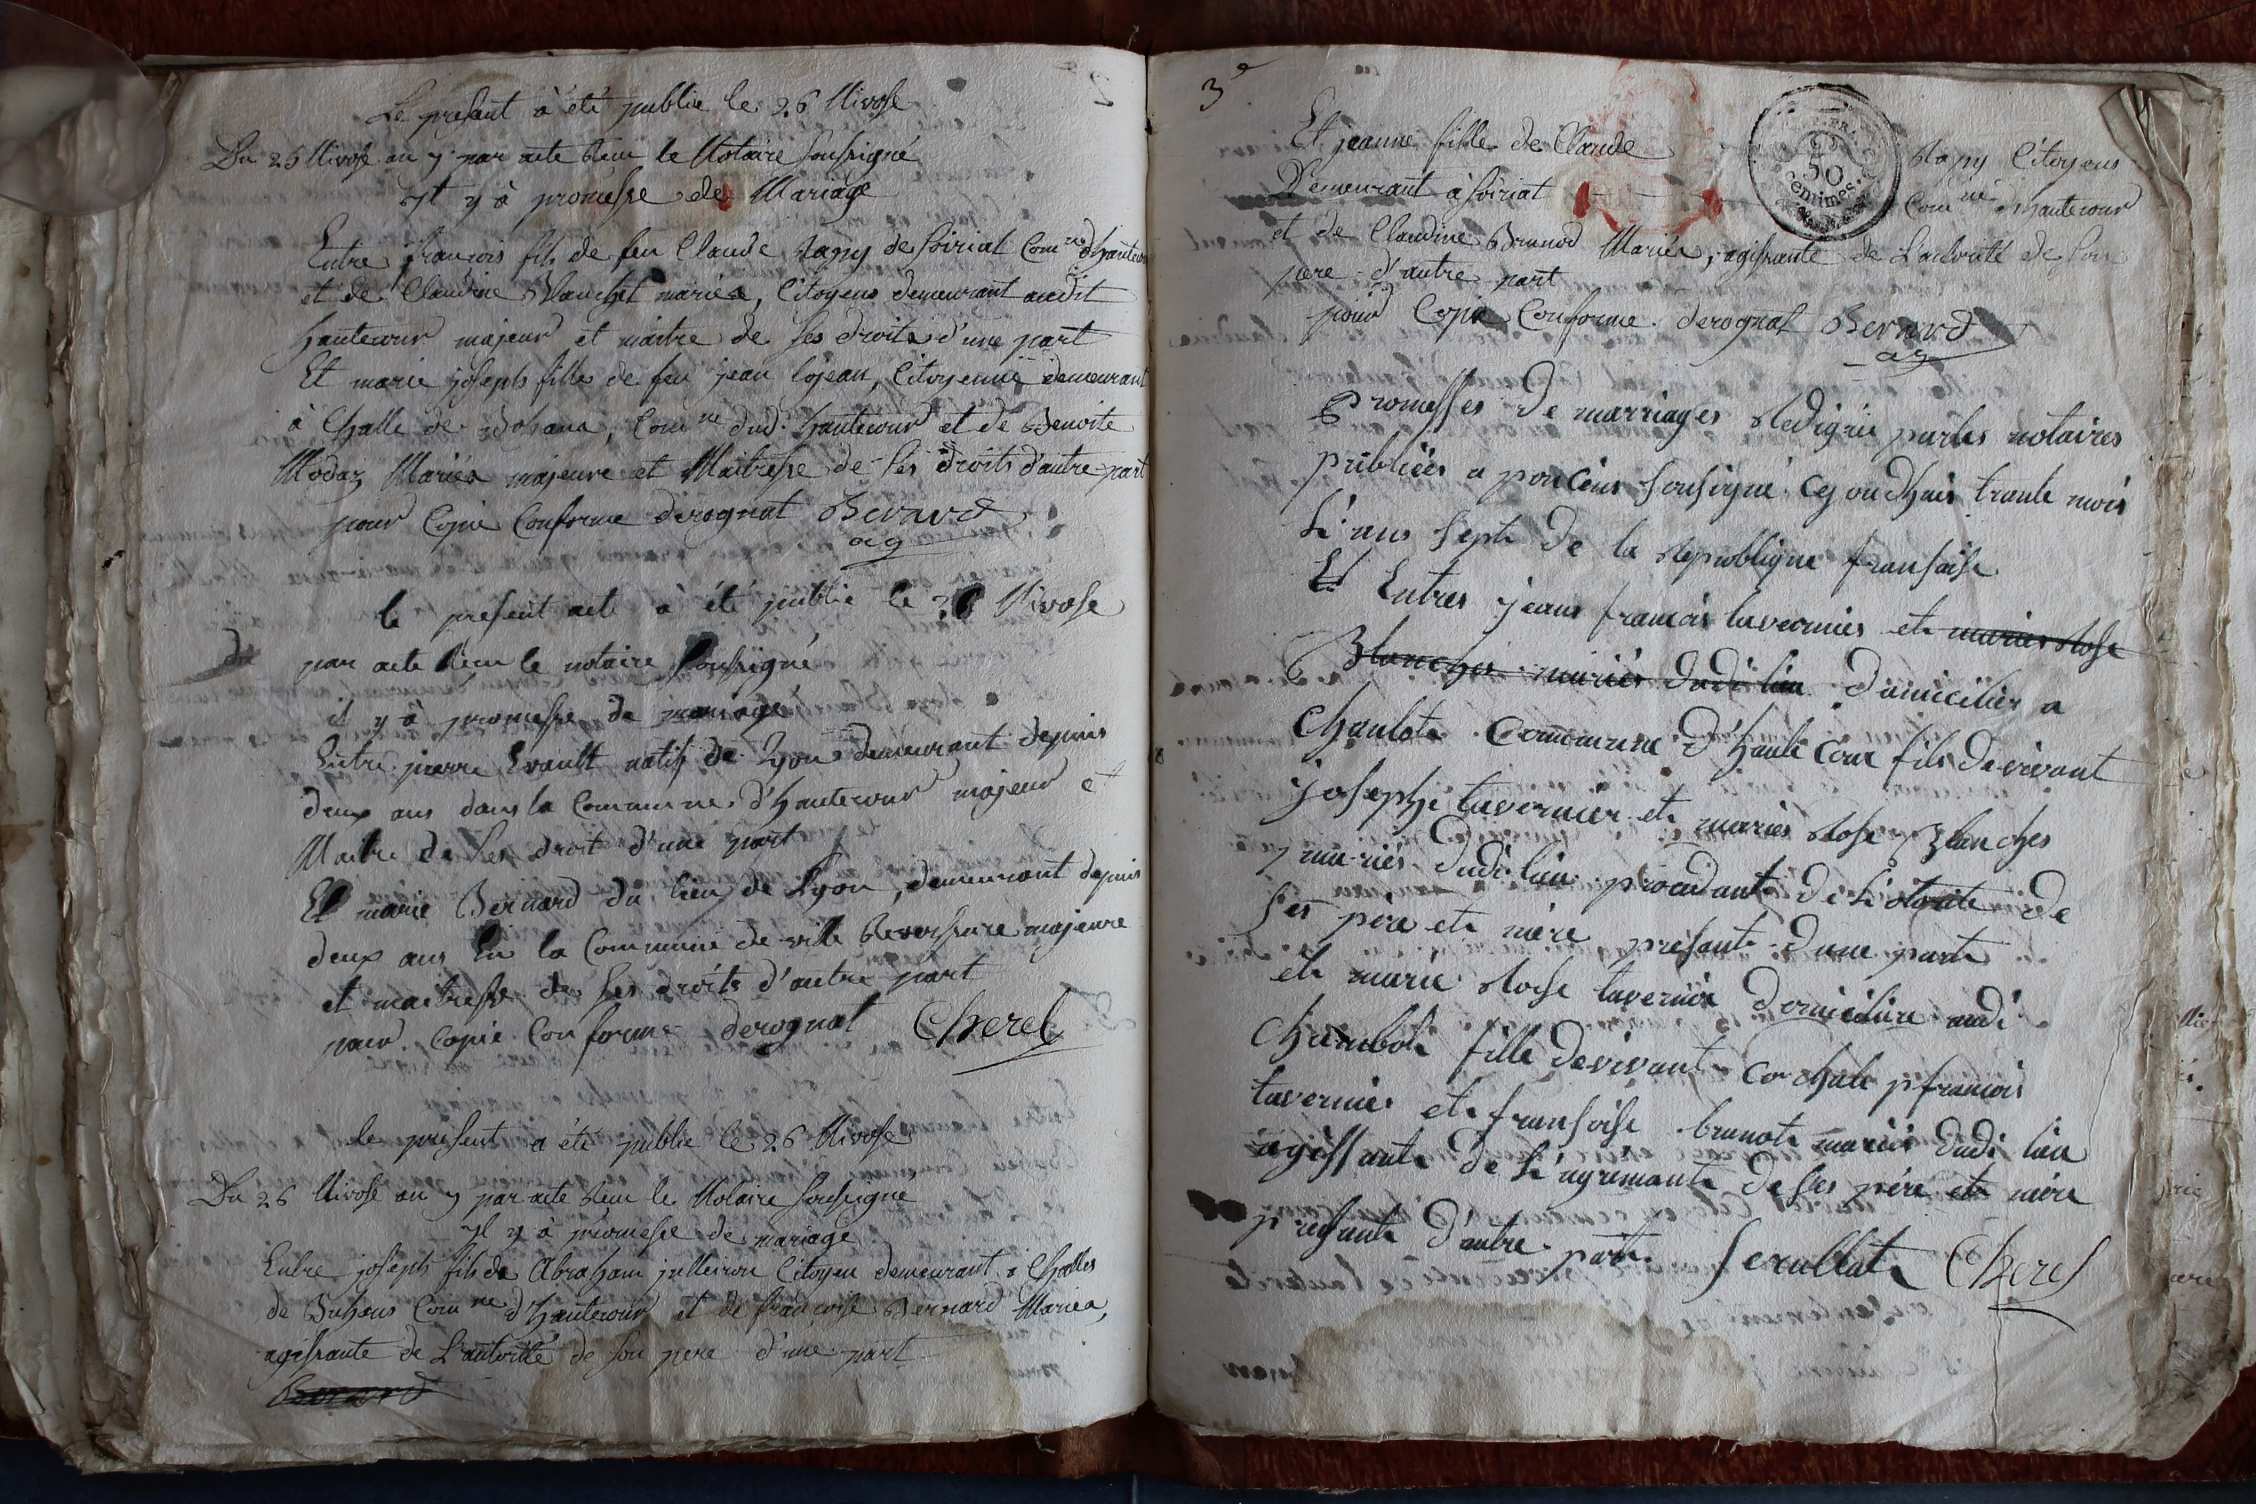 Le present à été publié le 26 Nivose
Du 26 Nivose an 7 par acte Recu le Notaire Soussigné
Yl y à promesse de Mariage
Entre francois fils de feu Claude Rapy de Soiriat Com^ne d'hautecour
et de Claudine Vauchet mariés, Citoyens demeurant audit
hautecour majeur et maitre de ses droits d'une part
Et marie joseph fille de feu jean lojean, Citoyenne demeurant
à Challe de Bohana, Com^ne dud. hautecour et de Benoite
Modaz Mariés majeure et Maitresse de ses droits d'autre part
pour Copie Conforme derognat Berard
ag
le present acte à été publié le 26 Nivose
du par acte Recu le notaire soussigné
il y à promesse de mariage
Entre pierre Evault natif de Lyon demeurant depuis
deux ans dans la Commune d'hautecour majeur et
Maitre de ses droit d'une part
Et marie Bernard du lieu de Lyon, demeurant depuis
deux ans En la Commune de ville Reversure majeure
et maitresse de ses droits d'autre part
pour Copie Conforme derognat Cherel
le present a été publié le 26 Nivose
Du 26 Nivose an 7 par acte Recu le Notaire soussigné
Yl y à promesse de mariage
Entre joseph fils de Abraham julleiron Citoyen demeurant à Challes
de Buhens Com^ne d'hautecour et de francoise Bernard Mariés,
agissante de L'autorité de son pere d'une part
Berard
3^e
Et jeanne fille de Claude Rapy Citoyens
Demeurant à Soiriat Com^ne d'hautecour
50
Centimes.
et de Claudine Brunod Mariés, agissante de L'autorité de son
pere d'autre part
pour Copie Conforme derognat Berard
ag
promesses de marriages Redigée parles notaires
publiées a poncins sousigné cy ourdhuis trante nivos
l'ans sept de la Republique fransaise
Et Entres jeans francois tavernier et maries Rose
Blanches mariés dudi lieu domicilier a
Chanbote Commune d'haute Cour fils devivant
josephe tavernier et maries Rose Blanches
mariés dudi lieu procedant de l'otorite de
ses père et mère présant d'une part
et marie Rose tavernier domicilire audi
Chambote fille devivant francois
tavernier et fransoise brunot mariés dudi lieu
agissante de l'agremante de ses père et mère
présante d'autre part. Serullat Cherel